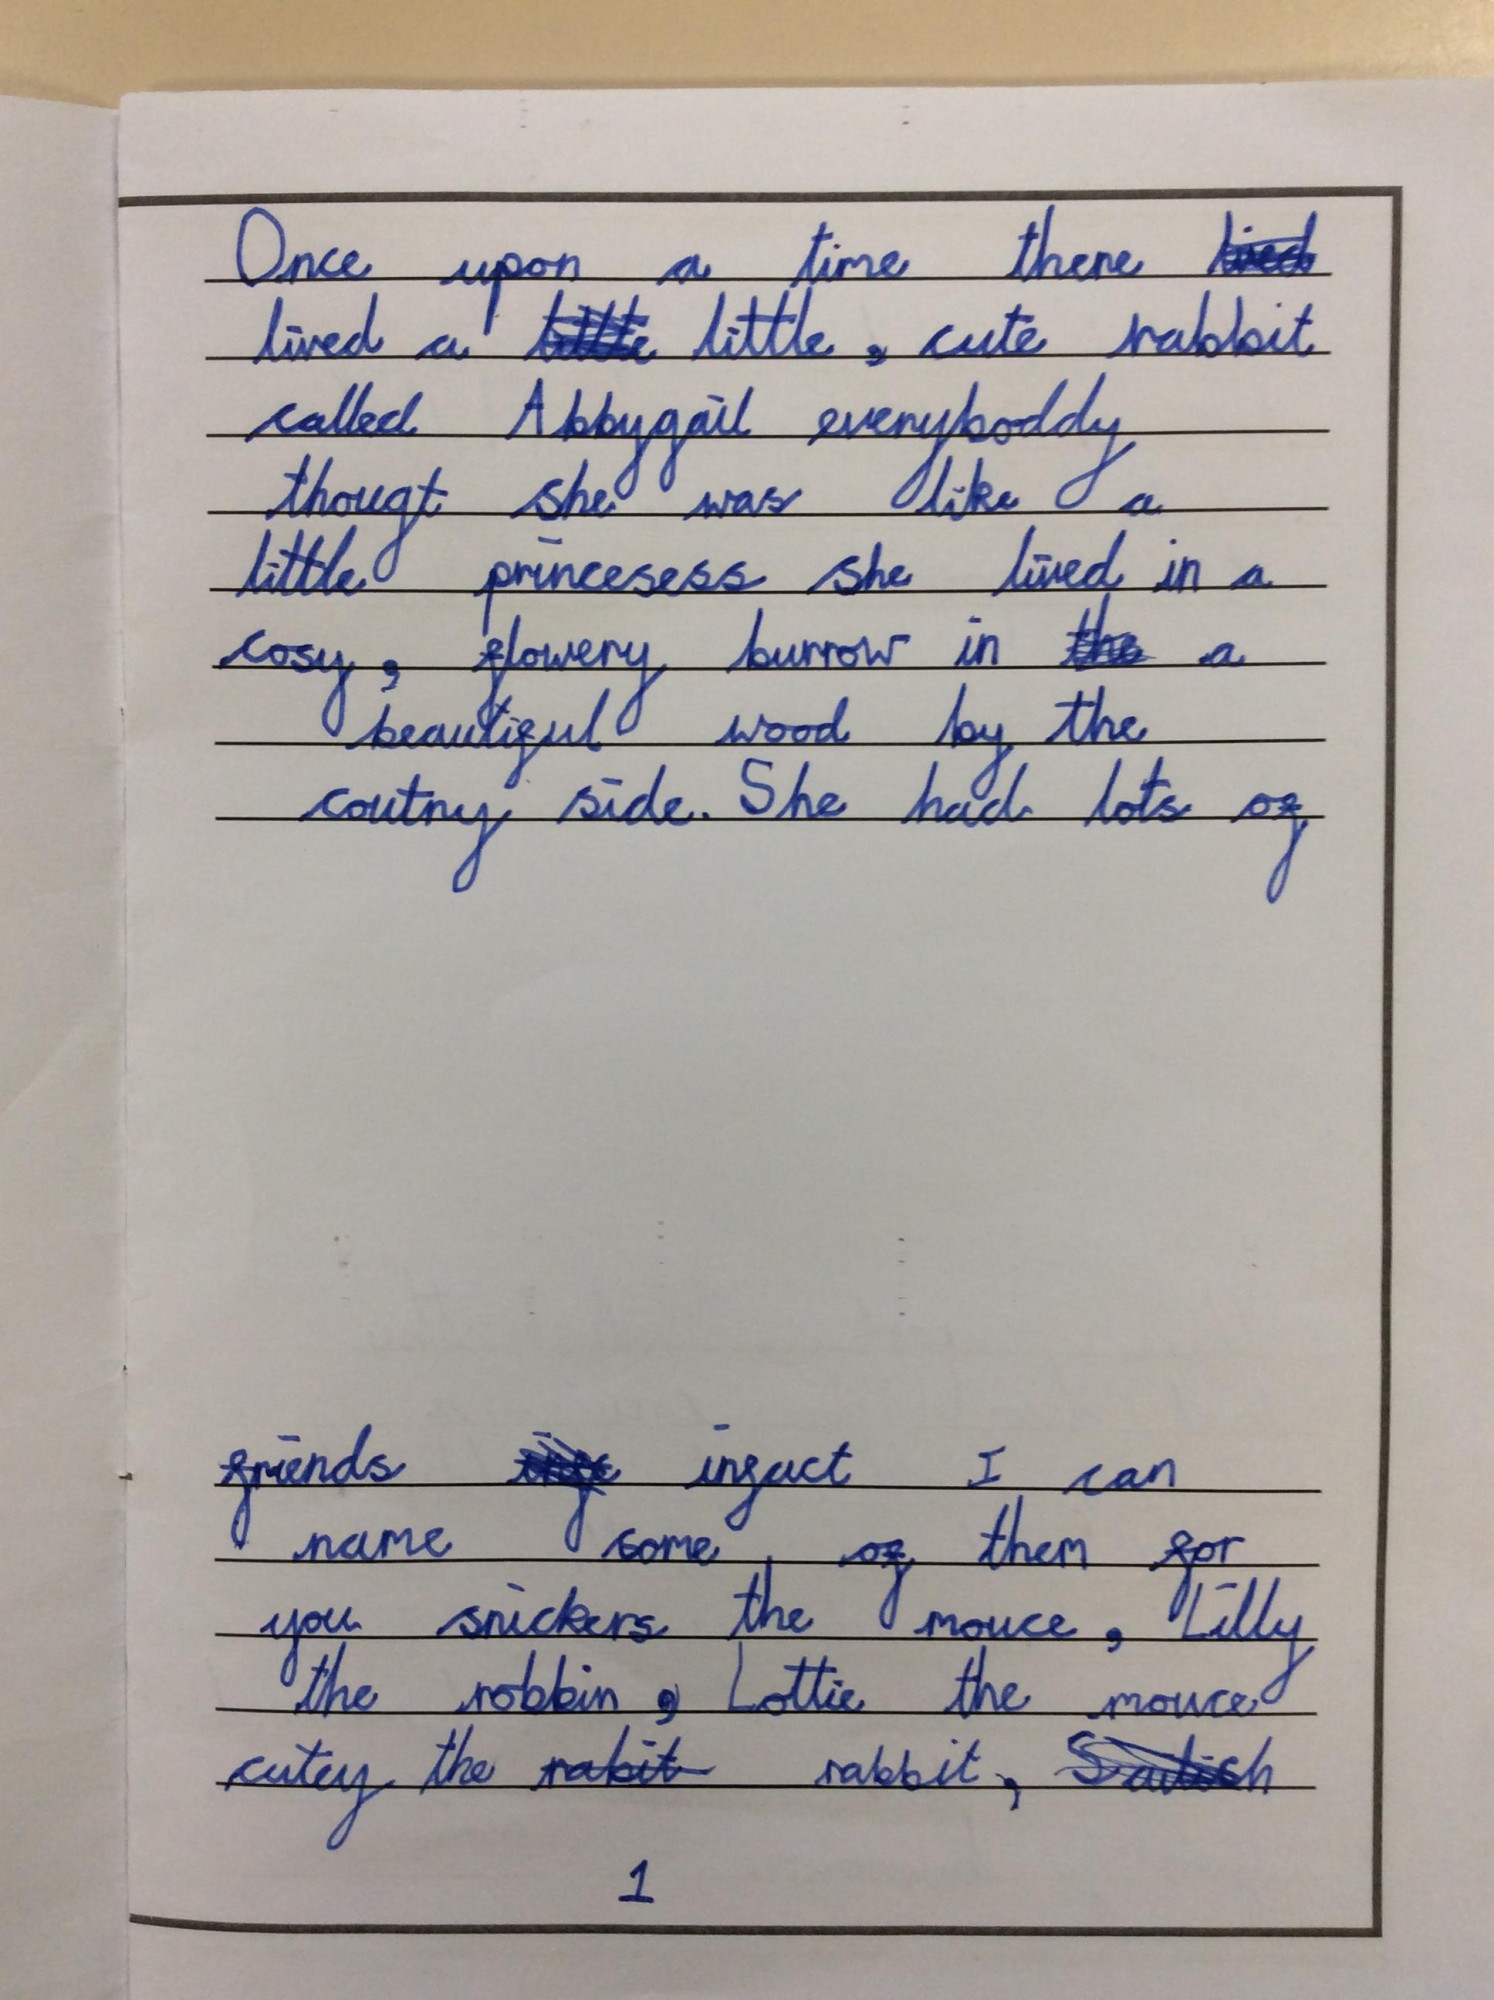 Once upon a time there
lived a little, cute rabbit
called Abbygail everyboddy
thougt she was like a
little princesess she lived in a
cosy, flowery burrow in the a
beautiful wood by the
coutny side. She had lots of
friends infact I can
name some of them for
you snickers the mouce, Lilly
the robbin, Lottie the mouce
cutey the rabit rabbit,
1